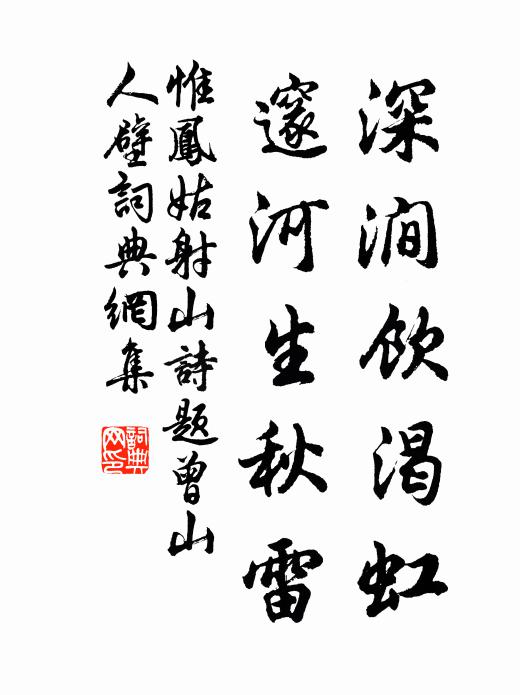 深澗飲渴虹
邃河生秋雷
惟鳳姑射山詩題曾山
人壁詞典網集
詞典网印